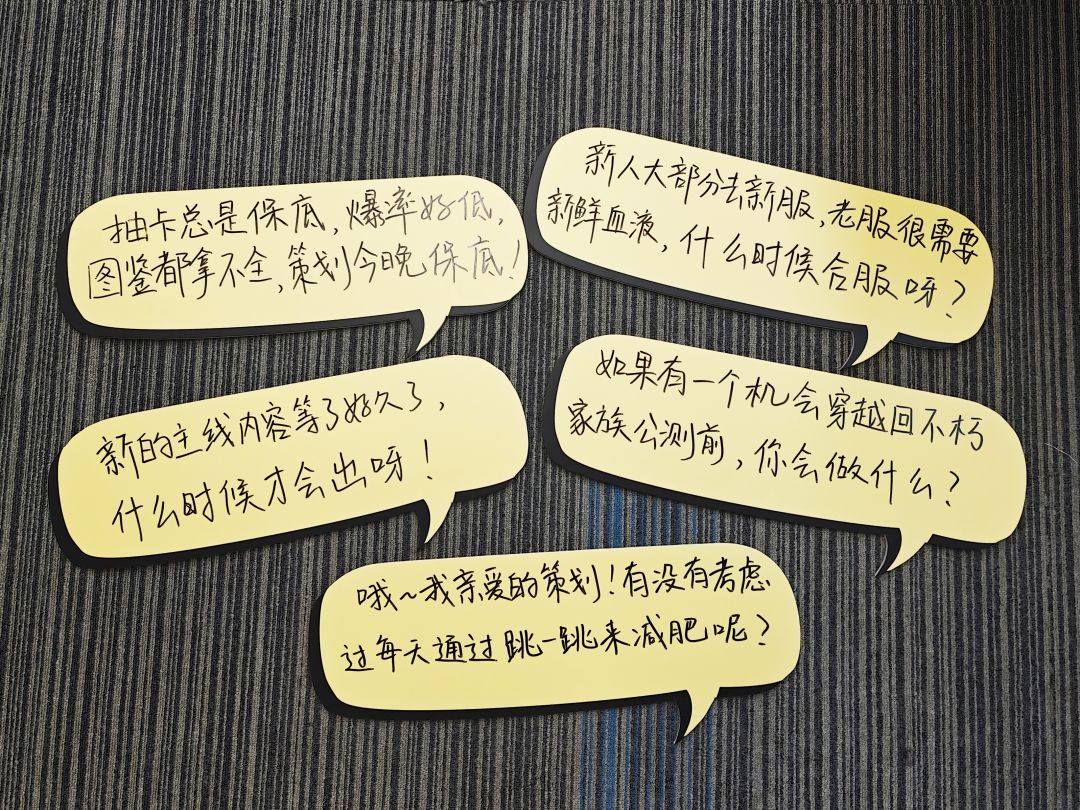 抽卡总是保底,爆率好低,
图鉴都拿不全,策划今晚保底!
新人大部分去新服,老服很需要
新鲜血液,什么时候合服呀?
新的主线内容等了好久了,
什么时候才会出呀!
如果有一个机会穿越回不朽
家族公测前,你会做什么?
哦~我亲爱的策划!有没有考虑
过每天通过跳一跳来减肥呢?